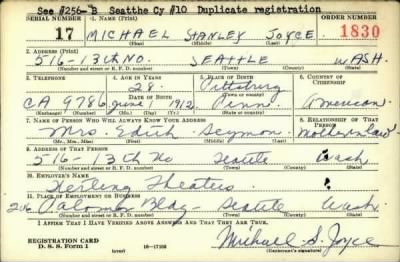 See #256-B Seatthe Cy #10 Duplicate registration
SERIAL NUMBER 1. NAME (Print) ORDER NUMBER
17 MICHAEL STANLEY JOYCE 1830
(First) (Middle) (Last)
2. ADDRESS (Print)
516-13th NO. SEATTLE WASH.
(Number and street or R. F. D. number) (Town) (County) (State)
3. TELEPHONE 4. AGE IN YEARS 5. PLACE OF BIRTH 6. COUNTRY OF CITIZENSHIP
28 Pittsburg
DATE OF BIRTH (Town or county)
CA 9786 June 1 1912 Penn. American
(Exchange) (Number) (Mo.) (Day) (Yr.) (State or country)
7. NAME OF PERSON WHO WILL ALWAYS KNOW YOUR ADDRESS 8. RELATIONSHIP OF THAT PERSON
Mrs Edith Seymon Mother in law
(Mr., Mrs., Miss) (First) (Middle) (Last)
9. ADDRESS OF THAT PERSON
516-13th No Seattle Wash
(Number and street or R. F. D. number) (Town) (County) (State)
10. EMPLOYER'S NAME
Sterling Theatres
11. PLACE OF EMPLOYMENT OR BUSINESS
206 Palomar Bldg- Seattle Wash.
(Number and street or R. F. D. number) (Town) (County) (State)
I AFFIRM THAT I HAVE VERIFIED ABOVE ANSWERS AND THAT THEY ARE TRUE.
REGISTRATION CARD
D. S. S. Form 1 (over) 16-17105 Michael S. Joyce
(Registrant's signature)